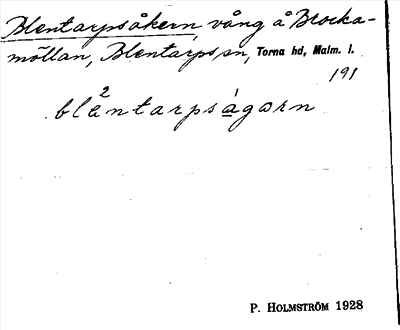 Blentarpsåkern, vång å Brocka-
möllan, Blentarps sn, Torna hd, Malm. l.
191
2 1
blentarpságərn
P. HOLMSTRÖM 1928